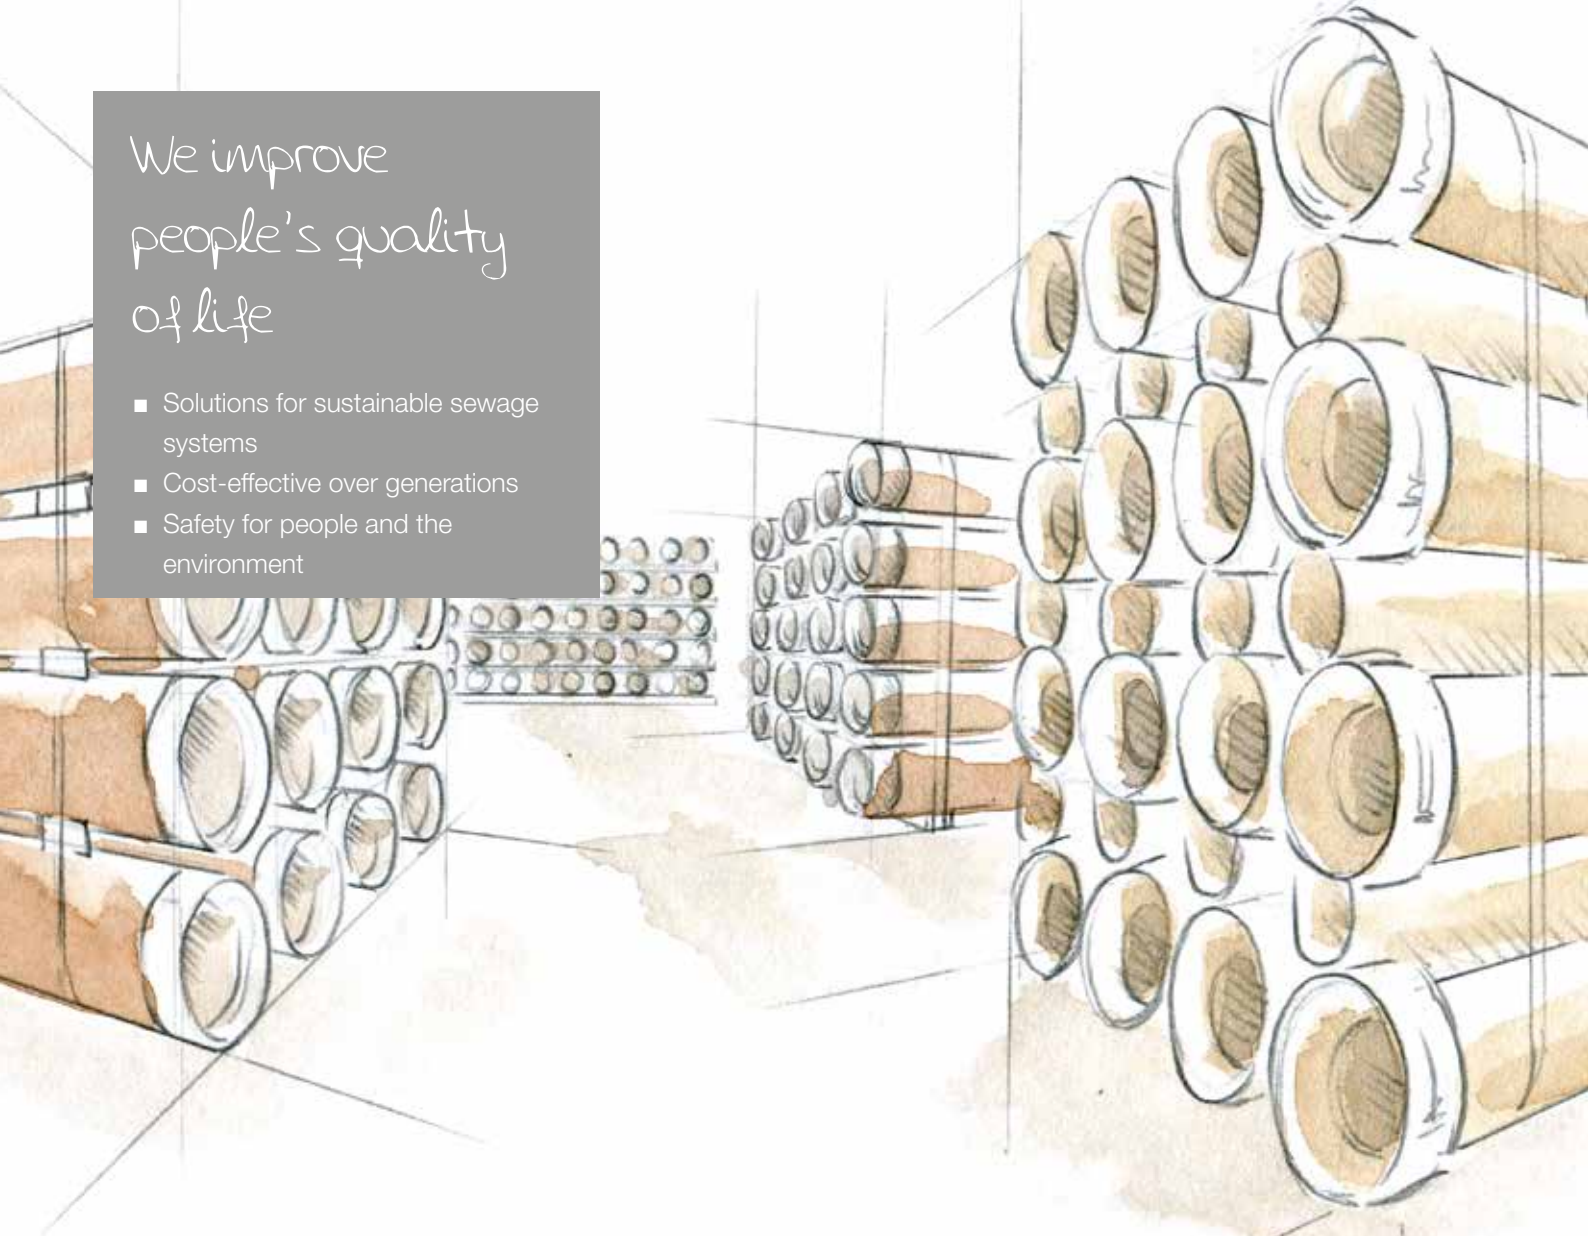 We improve
people's quality
of life
▪ Solutions for sustainable sewage
systems
▪ Cost-effective over generations
▪ Safety for people and the
environment